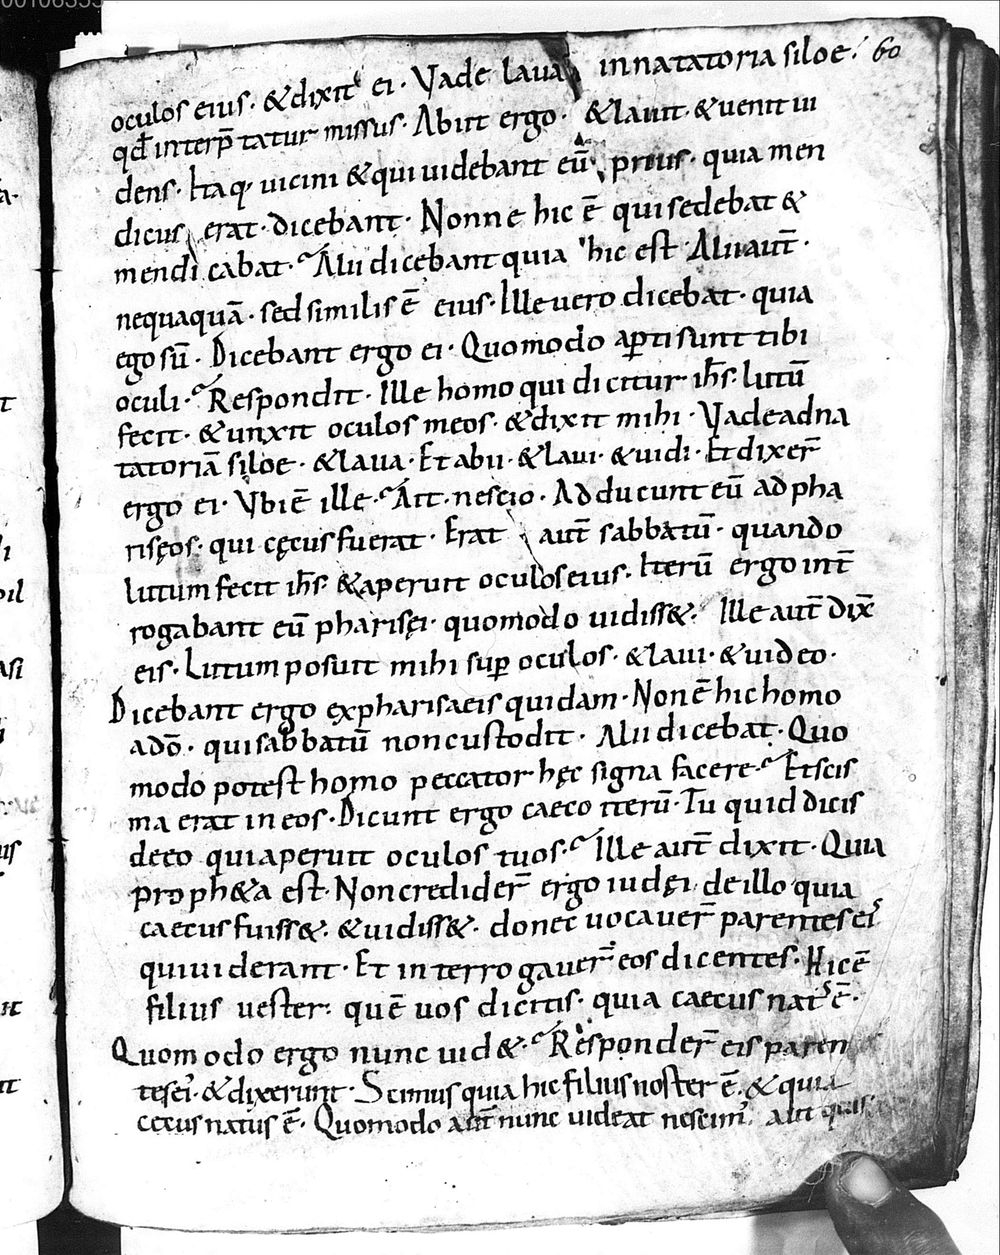 oculos eius· &dixit ei· Vade laua innatatoria siloe· 60
qd̄ interp̄tatur missus· Abiit ergo· &lauit· &uenit ui
dens· Itaq· uicini &qui uidebant eū prius· quia men
dicus erat· dicebant· Nonne hic ē qui sedebat &
mendicabat· Alii dicebant quia hic est Alii aut̄·
nequaquā· sed similis ē eius· Ille uero dicebat· quia
ego sū· Dicebant ergo ei· Quomodo aꝑti sunt tibi
oculi· Respondit· Ille homo qui dicitur ih̄s· lutū
fecit· &unxit oculos meos· &dixit mihi· Vade ad na
tatoriā siloe· &laua· Et abii· &laui· &uidi· Et dixer̄
ergo ei· Vbi ē ille· Ait· nescio· Adducunt eū ad pha
risęos· qui cęcus fuerat· Erat aut̄ sabbatū· quando
lutum fecit ih̄s· &aperuit oculos eius· Iterū ergo int̄
rogabant eū pharisęi· quomodo uidiss&· Ille aut̄ dix̄
eis· Lutum posuit mihi suꝑ oculos· &laui· &uideo·
Dicebant ergo ex pharisaeis quidam· Non ē hic homo
a dō· qui sabbatū non custodit· Alii dicebat· Quo
modo potest homo peccator hęc signa facere· Et scis
ma erat in eos· Dicunt ergo caeco iterū· Tu quid dicis
de eo qui aperuit oculos tuos· Ille aut̄ dixit· Quia
proph&a est· Non credider̄ ergo iudęi de illo quia
caecus fuiss&· &uidiss&· donec uocauer̄ parentes ei᾽
qui uiderant· Et interrogauer̄ eos dicentes· Hic ē
filius uester· quē uos dicitis· quia caecus nat᾽ ē·
Quomodo ergo nunc uid&· Responder̄ eis paren
tes ei᾽· &dixerunt· Scimus quia hic filius noster ē· & quia
cecus natus ē· Quomodo aut̄ nunc uideat nescim᾽· aut quis